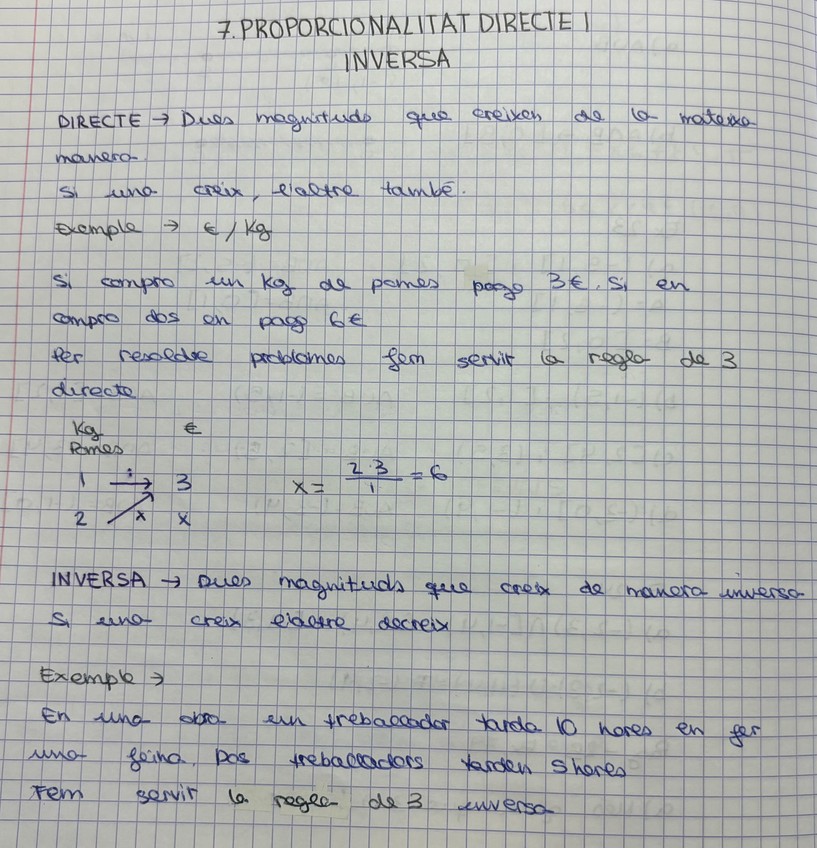 7. PROPORCIONALITAT DIRECTE I
INVERSA
DIRECTE → Dues magnituds que creixen de la mateixa
manera.
Si una creix, l'altre també.
Exemple → €/Kg
Si compro un Kg de pomes pago 3€. Si en
compro dos en pago 6€
Per resoldre problemes fem servir la regla de 3
directe
Kg €
Pomes
1 → 3 x = 2·3/1 = 6
2 x x
INVERSA → Dues magnituds que creix de manera inversa
Si una creix l'altre decreix
Exemple →
En una obra un treballador tarda 10 hores en fer
una feina. Dos treballadors tarden 5 hores
Fem servir la regla de 3 inversa